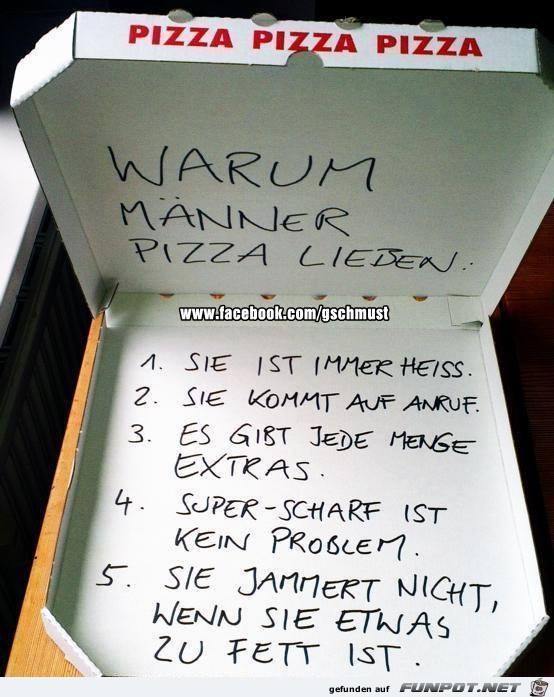 PIZZA PIZZA PIZZA
WARUM
MÄNNER
PIZZA LIEBEN:
www.facebook.com/gschmust
1. SIE IST IMMER HEISS.
2. SIE KOMMT AUF ANRUF.
3. ES GIBT JEDE MENGE
EXTRAS.
4. SUPER-SCHARF IST
KEIN PROBLEM.
5. SIE JAMMERT NICHT,
WENN SIE ETWAS
ZU FETT IST.
gefunden auf FUNPOT.NET